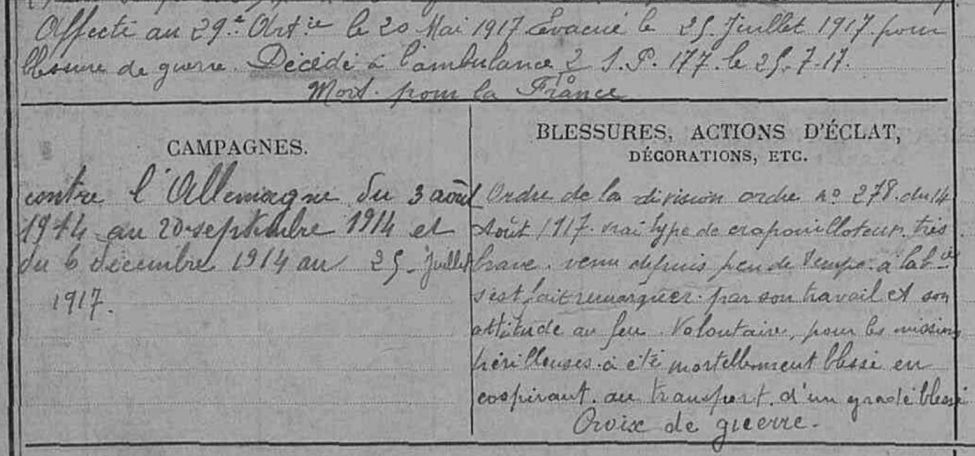 Affecté au 29e Artie le 20 Mai 1917 Evacué le 25 Juillet 1917 pour
blessure de guerre. Décédé à l'ambulance 2 S.P. 177. le 25-7-17.
Mort pour la France
CAMPAGNES.
contre l'Allemagne du 3 août
1914 au 20 septembre 1914 et
du 6 décembre 1914 au 25 Juillet
1917.
BLESSURES, ACTIONS D'ÉCLAT,
DÉCORATIONS, ETC.
Ordre de la division ordre no 278 du 14
Août 1917. vrai type de crapouilloteur. très
brave. venu depuis peu de temps à la bie
s'est fait remarquer par son travail et son
attitude au feu Volontaire, pour les missions
périlleuses. a été mortellement blessé en
coopérant au transport d'un gradé blessé
Croix de guerre.